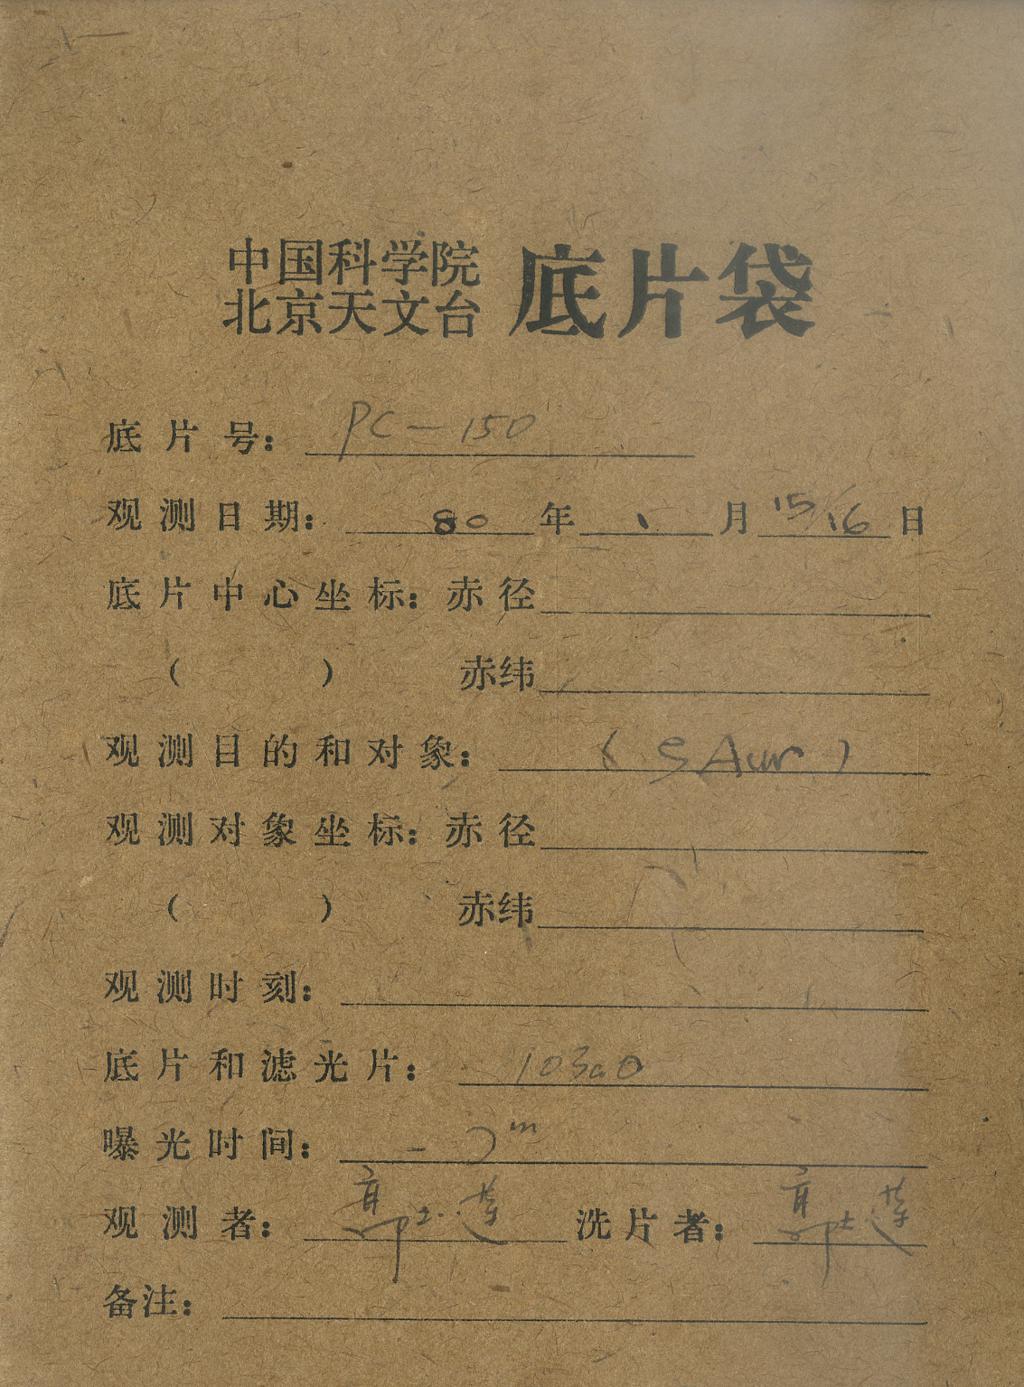 中国科学院
北京天文台 底片袋
底片号: PC-150
观测日期: 80年1月15/16日
底片中心坐标:赤径
( ) 赤纬
观测目的和对象: (S Aur)
观测对象坐标:赤径
( ) 赤纬
观测时刻:
底片和滤光片: 103aO
曝光时间:
观测者: 洗片者:
备注: